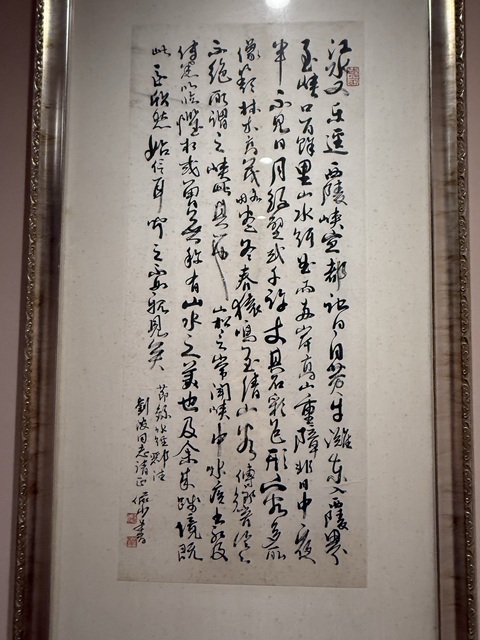 江水又东逕西陵峡宜都記曰自黄牛灘东入西陵界
至峡口百餘里山水紆曲而两岸高山重障非日中夜
半不見日月絶壁或千許丈其石彩色形容多所
像類林木高茂略盡冬春猿鳴至清山谷傳響泠泠
不絶所謂三峡此其一也山松言常聞峡中水疾書記及
傳悉以臨懼相戒曾無称有山水之美也及余来踐境既
此至欣然始信耳聞之不如親見矣
節録水經酈注
劉波同志清正